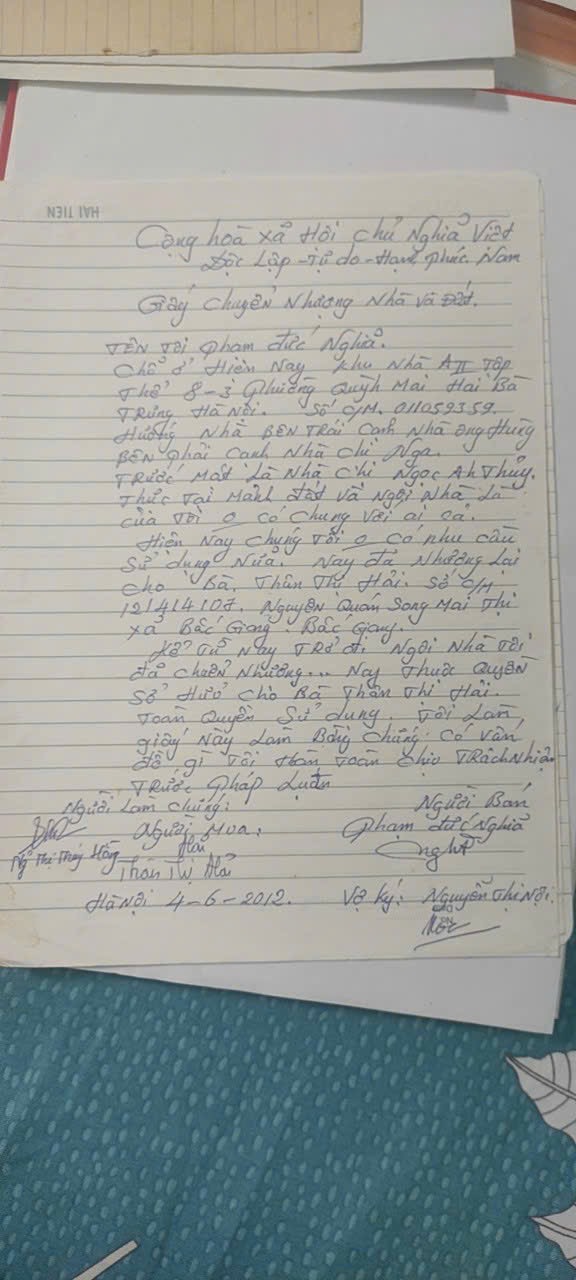 HAI TIEN
Cộng hoà xã Hội chủ Nghĩa Việt
Độc Lập - Tự do - Hạnh phúc. Nam
Giấy chuyển Nhượng Nhà và Đất.
TÊN Tôi phạm đức Nghĩa.
Chổ ở Hiện Nay khu Nhà AII Tập
Thể 8-3 phường Quỳnh Mai Hai Bà
TRưng Hà Nội. Số C/M. 011059359.
Hướng Nhà BÊN TRái cạnh Nhà ông Hùng
BÊN phải cạnh Nhà chị Nga.
TRước Mặt Là Nhà chị Ngọc Anh Thủy.
Thực Tại Mảnh đất và Ngôi Nhà Là
của Tôi o có chung với ai cả.
Hiện Nay chúng Tôi o có nhu cầu
Sử dụng Nữa. Nay đã Nhượng Lại
cho Bà. Thân Thị Hải. Số C/M
121414107. Nguyên Quán Song Mai Thị
xã Bắc Giang. Bắc Giang.
Kể Từ Nay TRở đi Ngôi Nhà Tôi
đã chuển Nhượng... Nay Thuộc Quyền
Sở Hưở cho Bà Thân Thị Hải.
Toàn Quyền Sử dụng. Tôi Làm
giấy Này Làm Bằng chứng. Có vấn
đề gì Tôi Hoàn Toàn chịu TRách Nhiệm
TRước pháp Luận
Người Làm chứng:
Người Mua:
Người Bán
phạm đức Nghĩa
Hải
Nghĩa
Thị Thúy Hằng
Thân Thị Hải
Hà Nội 4-6-2012.
Vợ ký: Nguyễn Thị Nội.